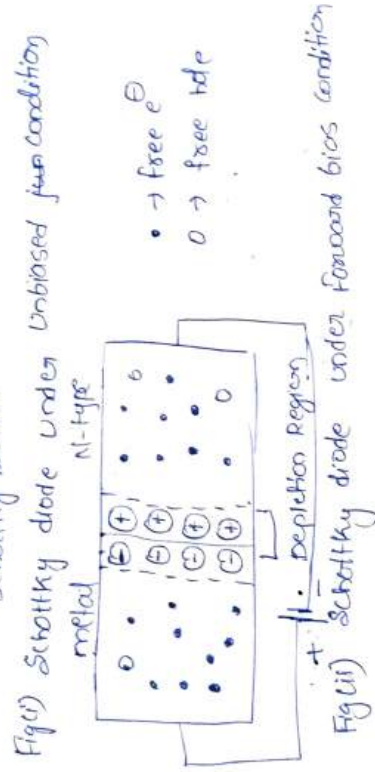 Fig(i) Schottky diode under unbiased condition
metal N-type
• → free e⊖
O → free hole
Depletion Region
+ -
Fig(ii) Schottky diode under forward bias condition